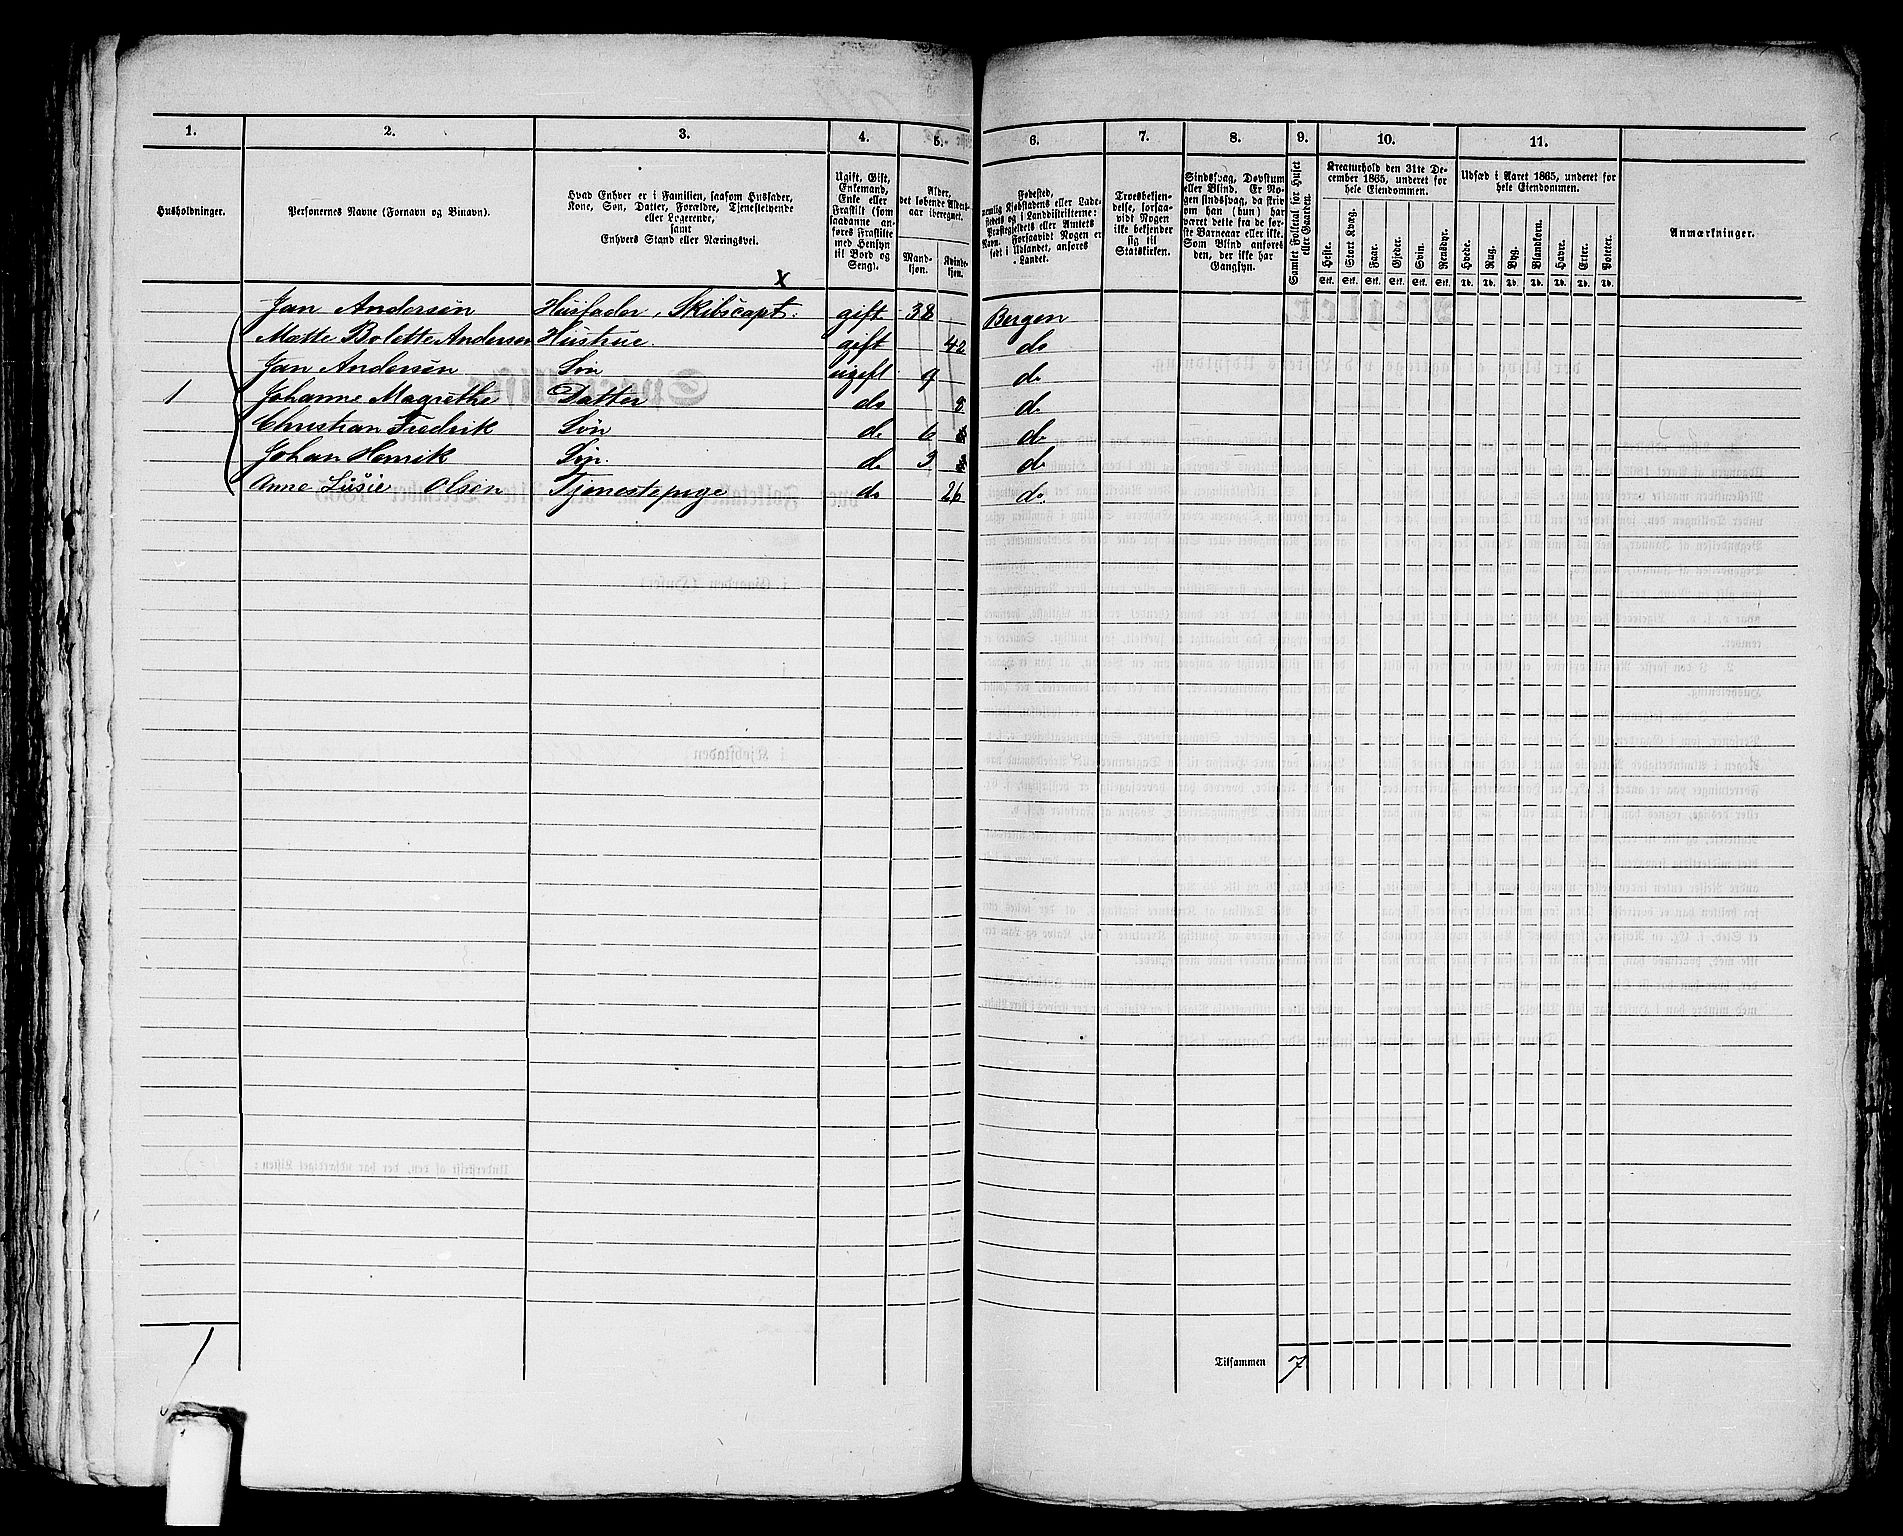 1. 2. 3. 4. 5. 6. 7. 8. 9. 10. 11.
Husholdninger.
Personernes Navne (Fornavn og Binavn).
Hvad Enhver er i Familien, saasom Husfader,
Kone, Søn, Datter, Forældre, Tjenestetyende
eller Logerende,
samt
Enhvers Stand eller Næringsvei.
Ugift, Gift,
Enkemand,
Enke eller
Fraskilt (som
saadanne an-
føres Fraskilte
med Hensyn
til Bord og
Seng).
Alder,
det løbende Alders-
aar iberegnet.
Mand-
kjøn.
Kvinde-
kjøn.
Fødested,
nemlig Kjøbstadens eller Lade-
stedets og i Landdistrikterne:
Præstegjeldets eller Amtets
Navn. Forsaavidt Nogen er
født i Udlandet, anføres
Landet.
Troesbekjen-
delse, forsaa-
vidt Nogen
ikke bekjender
sig til
Statskirken.
Sindssvag, Døvstum
eller Blind. Er No-
gen sindssvag, da skriv
om han (hun) har
været dette fra de før-
ste Barneaar eller ikke.
Som Blind anføres
den, der ikke har
Gangsyn.
Samlet Folketal for Huset
eller Gaarden.
Kreaturhold den 31te De-
cember 1865, underet for
hele Eiendommen.
Heste. Stort Kvæg. Faar. Gjeder. Svin. Rensdyr.
Stk. Stk. Stk. Stk. Stk. Stk.
Udsæd i Aaret 1865, underet for
hele Eiendommen.
Hvede. Rug. Byg. Blandkorn. Havre. Erter. Poteter.
Td. Td. Td. Td. Td. Td. Td.
Anmærkninger.
x
Jan Andersen Husfader, Skibscapt. gift 38 Bergen
Mette Bolette Andersen Hustrue. gift 42 do
Jan Andersen Søn ugift 9 do
1 Johanne Magrethe Datter do 8 do
Christian Fredrik Søn do 6 do
Johan Henrik Søn. do 3 do
Anne Lusie Olsen Tjenestepige do 26 do.
1
Tilsammen 7